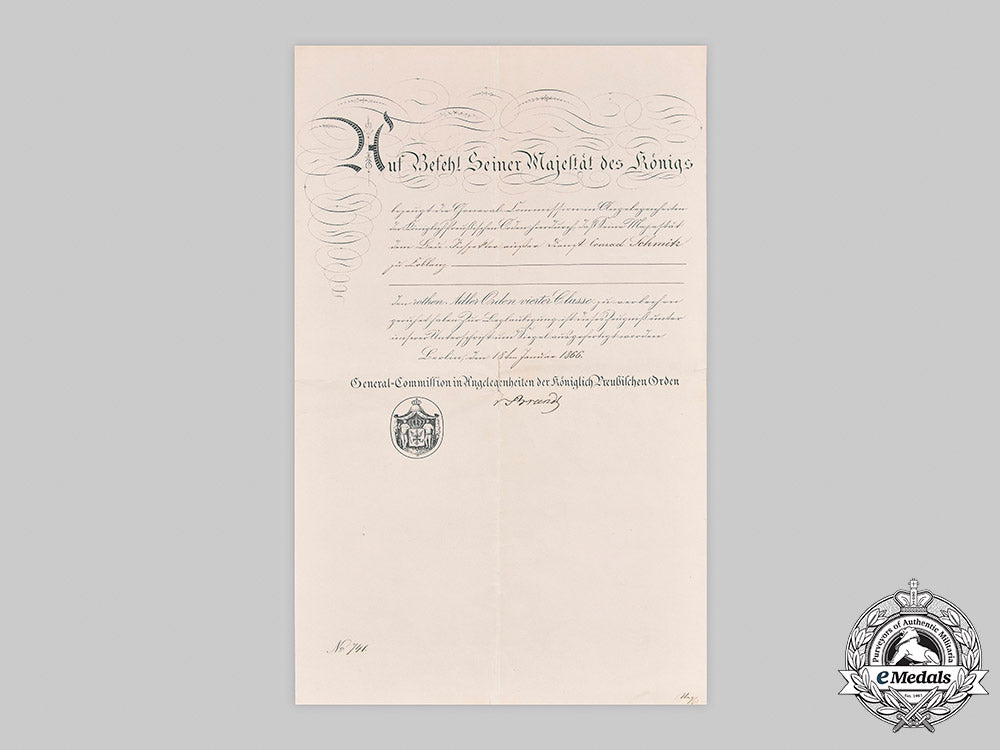 Auf Befehl Seiner Majestät des Königs
bezeugt die General-Commission in Angelegenheiten
der Königlich Preußischen Orden hierdurch, daß Seine Majestät
dem Bau Inspektor außer Dienst Conrad Schmitz
zu Coblenz
den rothen Adler Orden vierter Classe zu verleihen
geruhet haben. Zur Beglaubigung ist dieses Zeugniß unter
unserer Unterschrift und Siegel ausgefertigt worden
Berlin, den 18ten Januar 1866.
General-Commission in Angelegenheiten der Königlich Preußischen Orden
v Brandt
No 741
Purveyors of Authentic Militaria
eMedals